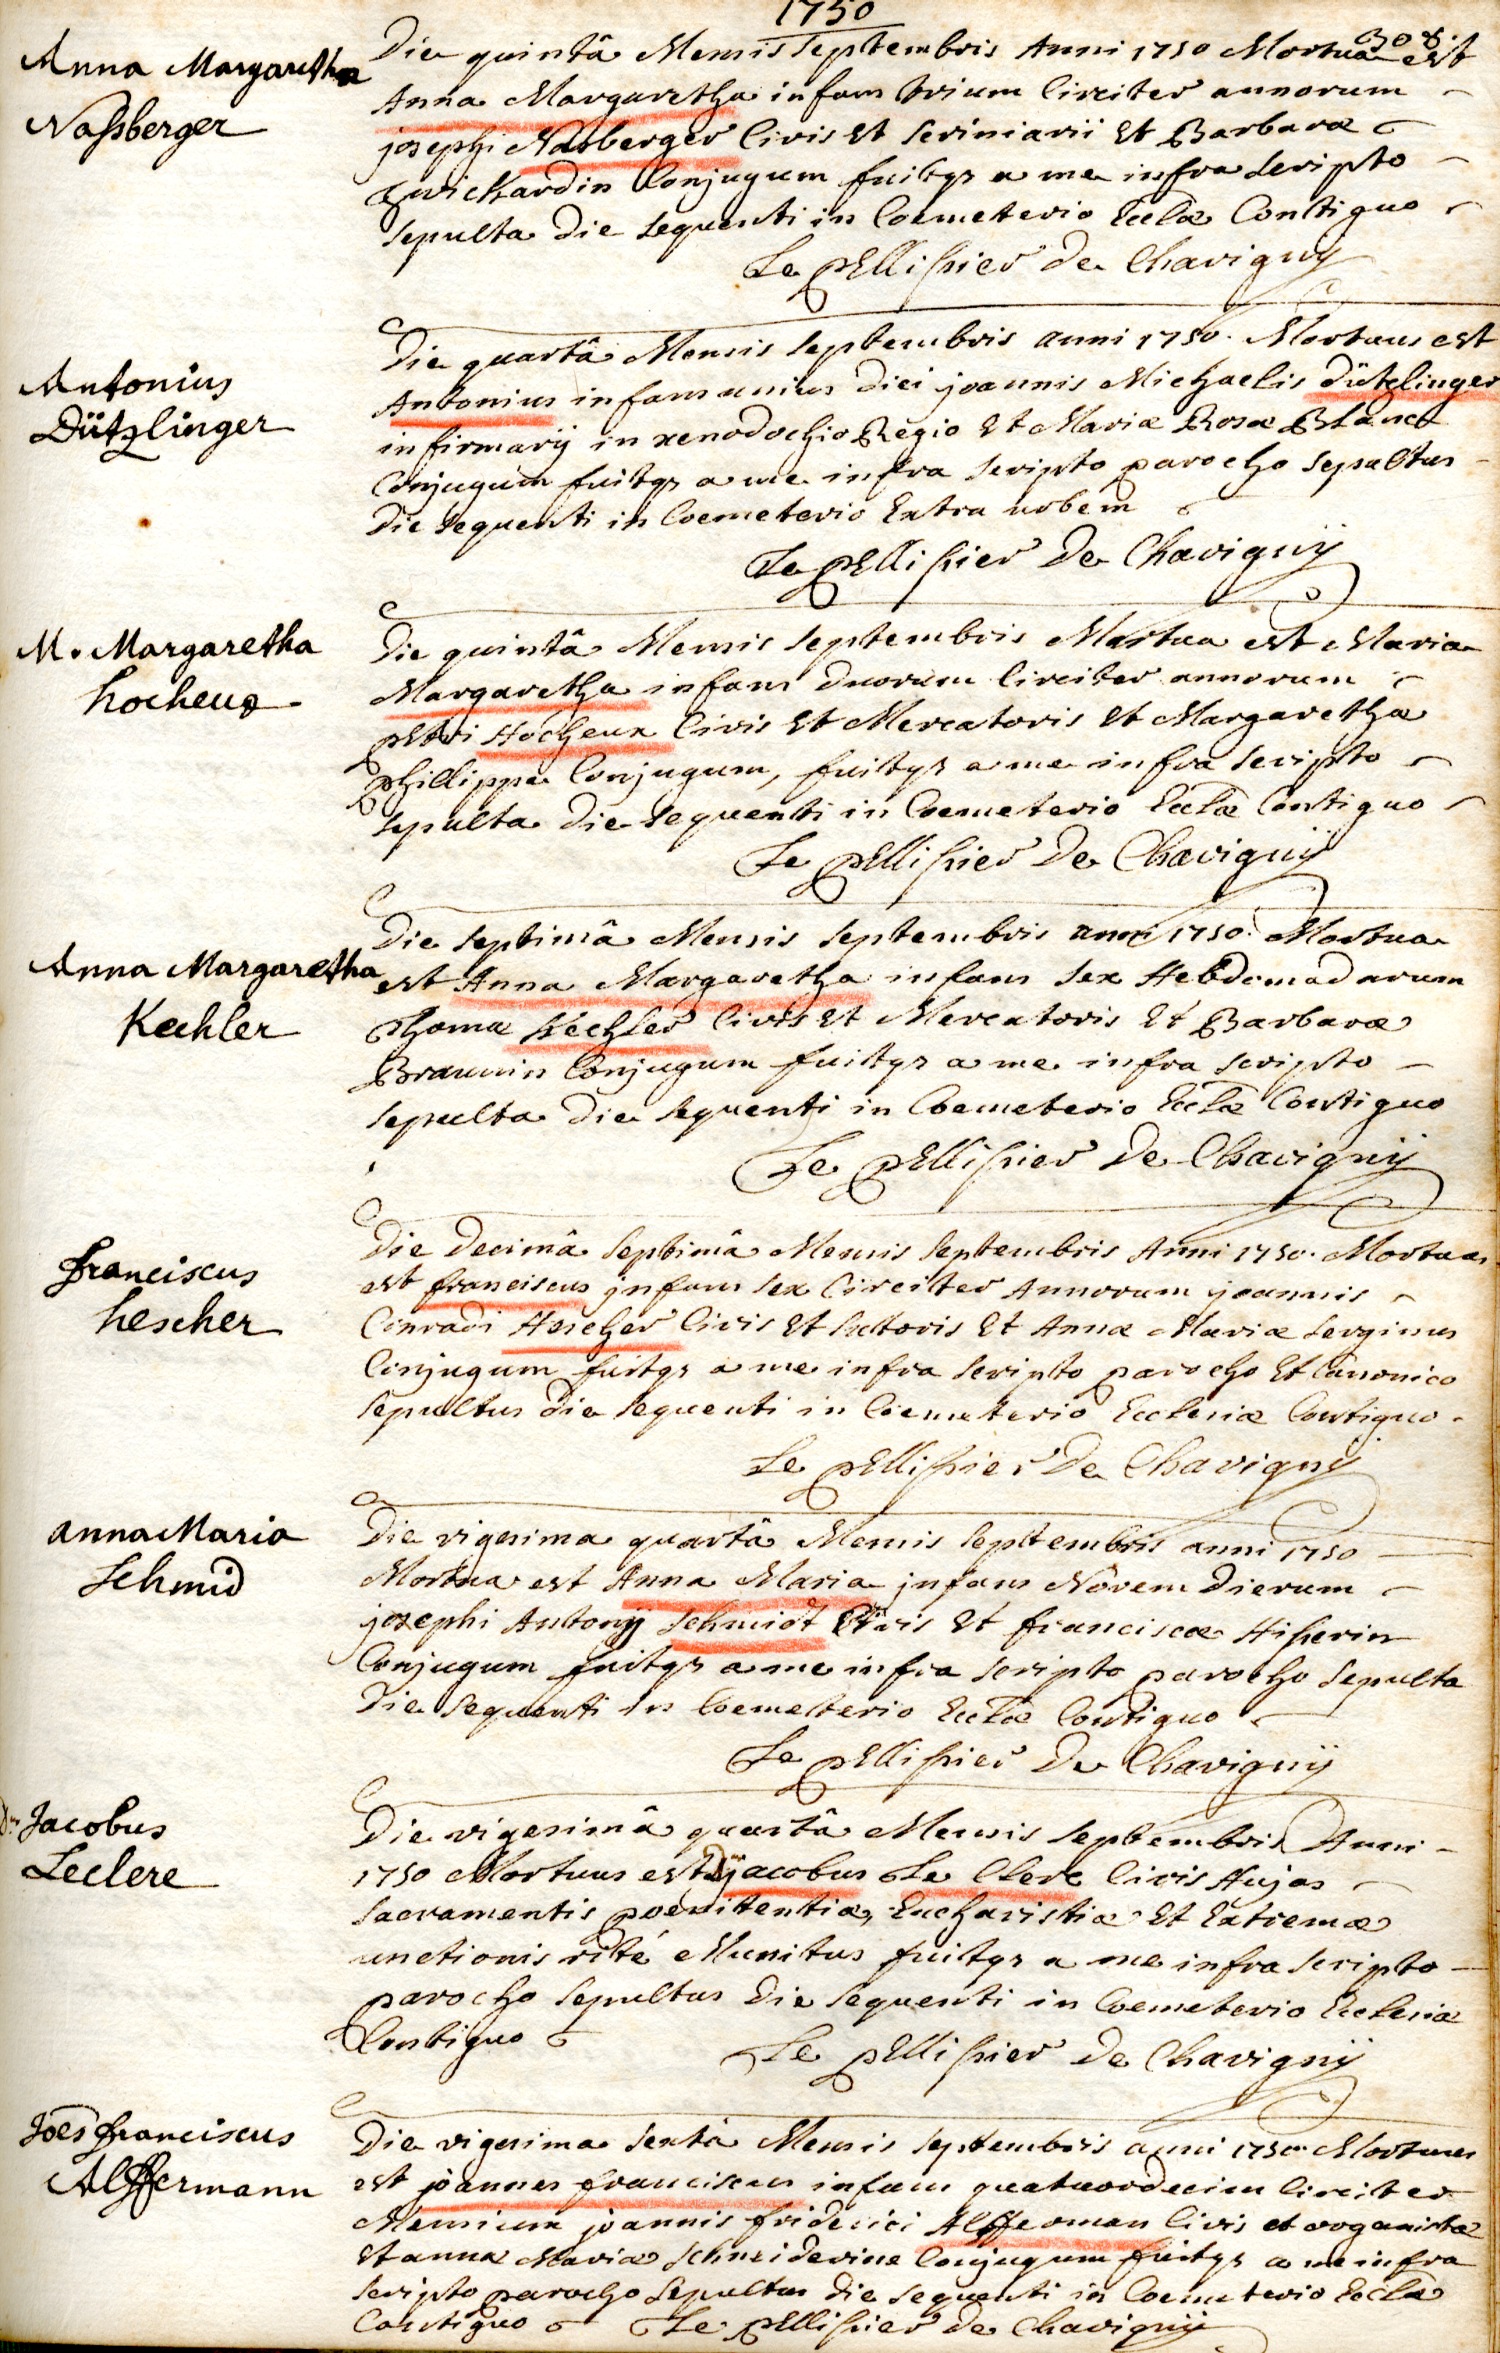 1750
308.
Anna Margaretha
Naßberger
Die quintâ Mensis Septembris Anni 1750 Mortua est
Anna Margaretha infans trium Circiter annorum
josephi Nasberger Civis Et Scriniarii Et Barbaræ
Zwickardin Conjugum fuitqs a me infra Scripto
Sepulta Die Sequenti in Coemeterio Eccłæ Contiguo
Le pEllissier De Chavigny
Antonius
Dützlinger
Die quartâ Mensis Septembris anni 1750. Mortuus est
Antonius infans unius Diei joannis Michaelis Dützlinger
infirmarij in xenodochio Regio Et Mariæ Rosæ Blanch
Conjugum fuitqs a me infra Scripto parocho Sepultus
Die Sequenti in Coemeterio Extra urbem
Le pEllissier De Chavignÿ
M. Margaretha
hocheux
Die quintâ Mensis Septembris Mortua est Maria
Margaretha infans duorum Circiter annorum
pEtri Hocheux Civis Et Mercatoris Et Margaretha
phillippe Conjugum, fuitqs a me infra Scripto
Sepulta Die Sequenti in Coemeterio Eccłæ Contiguo
Le pEllissier De Chavignÿ
Anna Margaretha
Kechler
Die Septimâ Mensis Septembris anni 1750. Mortua
est Anna Margaretha infans Sex Hebdomadarum
Thomæ Kechler Civis Et Mercatoris Et Barbaræ
Braunin Conjugum fuitqs a me infra Scripto
Sepulta Die Sequenti in Coemeterio Eccłæ Contiguo
Le pEllissier De Chavignÿ
franciscus
hescher
Die Decimâ Septimâ Mensis Septembris Anni 1750. Mortuus
est franciscus jnfans Sex Circiter Annorum joannis
Conradi Hescher Civis Et Sutoris Et Annæ Mariæ
Conjugum fuitqs a me infra Scripto parocho Et Canonico
Sepultus Die Sequenti in Coemeterio Ecclesiæ Contiguo.
Le pEllissier De Chavignÿ
anna Maria
Schmid
Die vigesima quartâ Mensis Septembris anni 1750
Mortua est Anna Maria jnfans Novem Dierum
josephi Antonij Schmidt Civis Et franciscæ Hisserin
Conjugum fuitqs a me infra Scripto parocho Sepulta
Die Sequenti in Coemeterio Eccłæ Contiguo
Le pEllissier De Chavignÿ
Dns Jacobus
Leclerc
Die vigesimâ quartâ Mensis Septembris Anni
1750 Mortuus est Dns jacobus Le Clerc Civis Hujas
Sacramentis poenitentiæ, Eucharistiæ Et Extremæ
unctionis rité Munitus fuitqs a me infra Scripto
parocho Sepultus Die Sequenti in Coemeterio Ecclesiæ
Contiguo
Le pEllissier De Chavignÿ
Joēs franciscus
Alffermann
Die vigesima Sexta Mensis Septembris anni 1750. Mortuus
est joannes franciscus infans quatuordecim Circiter
Mensium joannis friderici Alfferman Civis et organistæ
Et annæ Mariæ Schneiderine Conjugum fuitqs a me infra
Scripto parocho Sepultus Die Sequenti in Coemeterio Eccłæ
Contiguo Le pEllissier de Chavignÿ